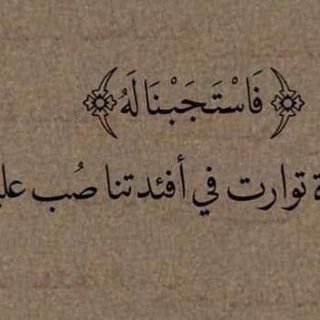 ﴿فَاسْتَجَبْنَا لَهُ﴾
توارت في أفئدتنا صُب